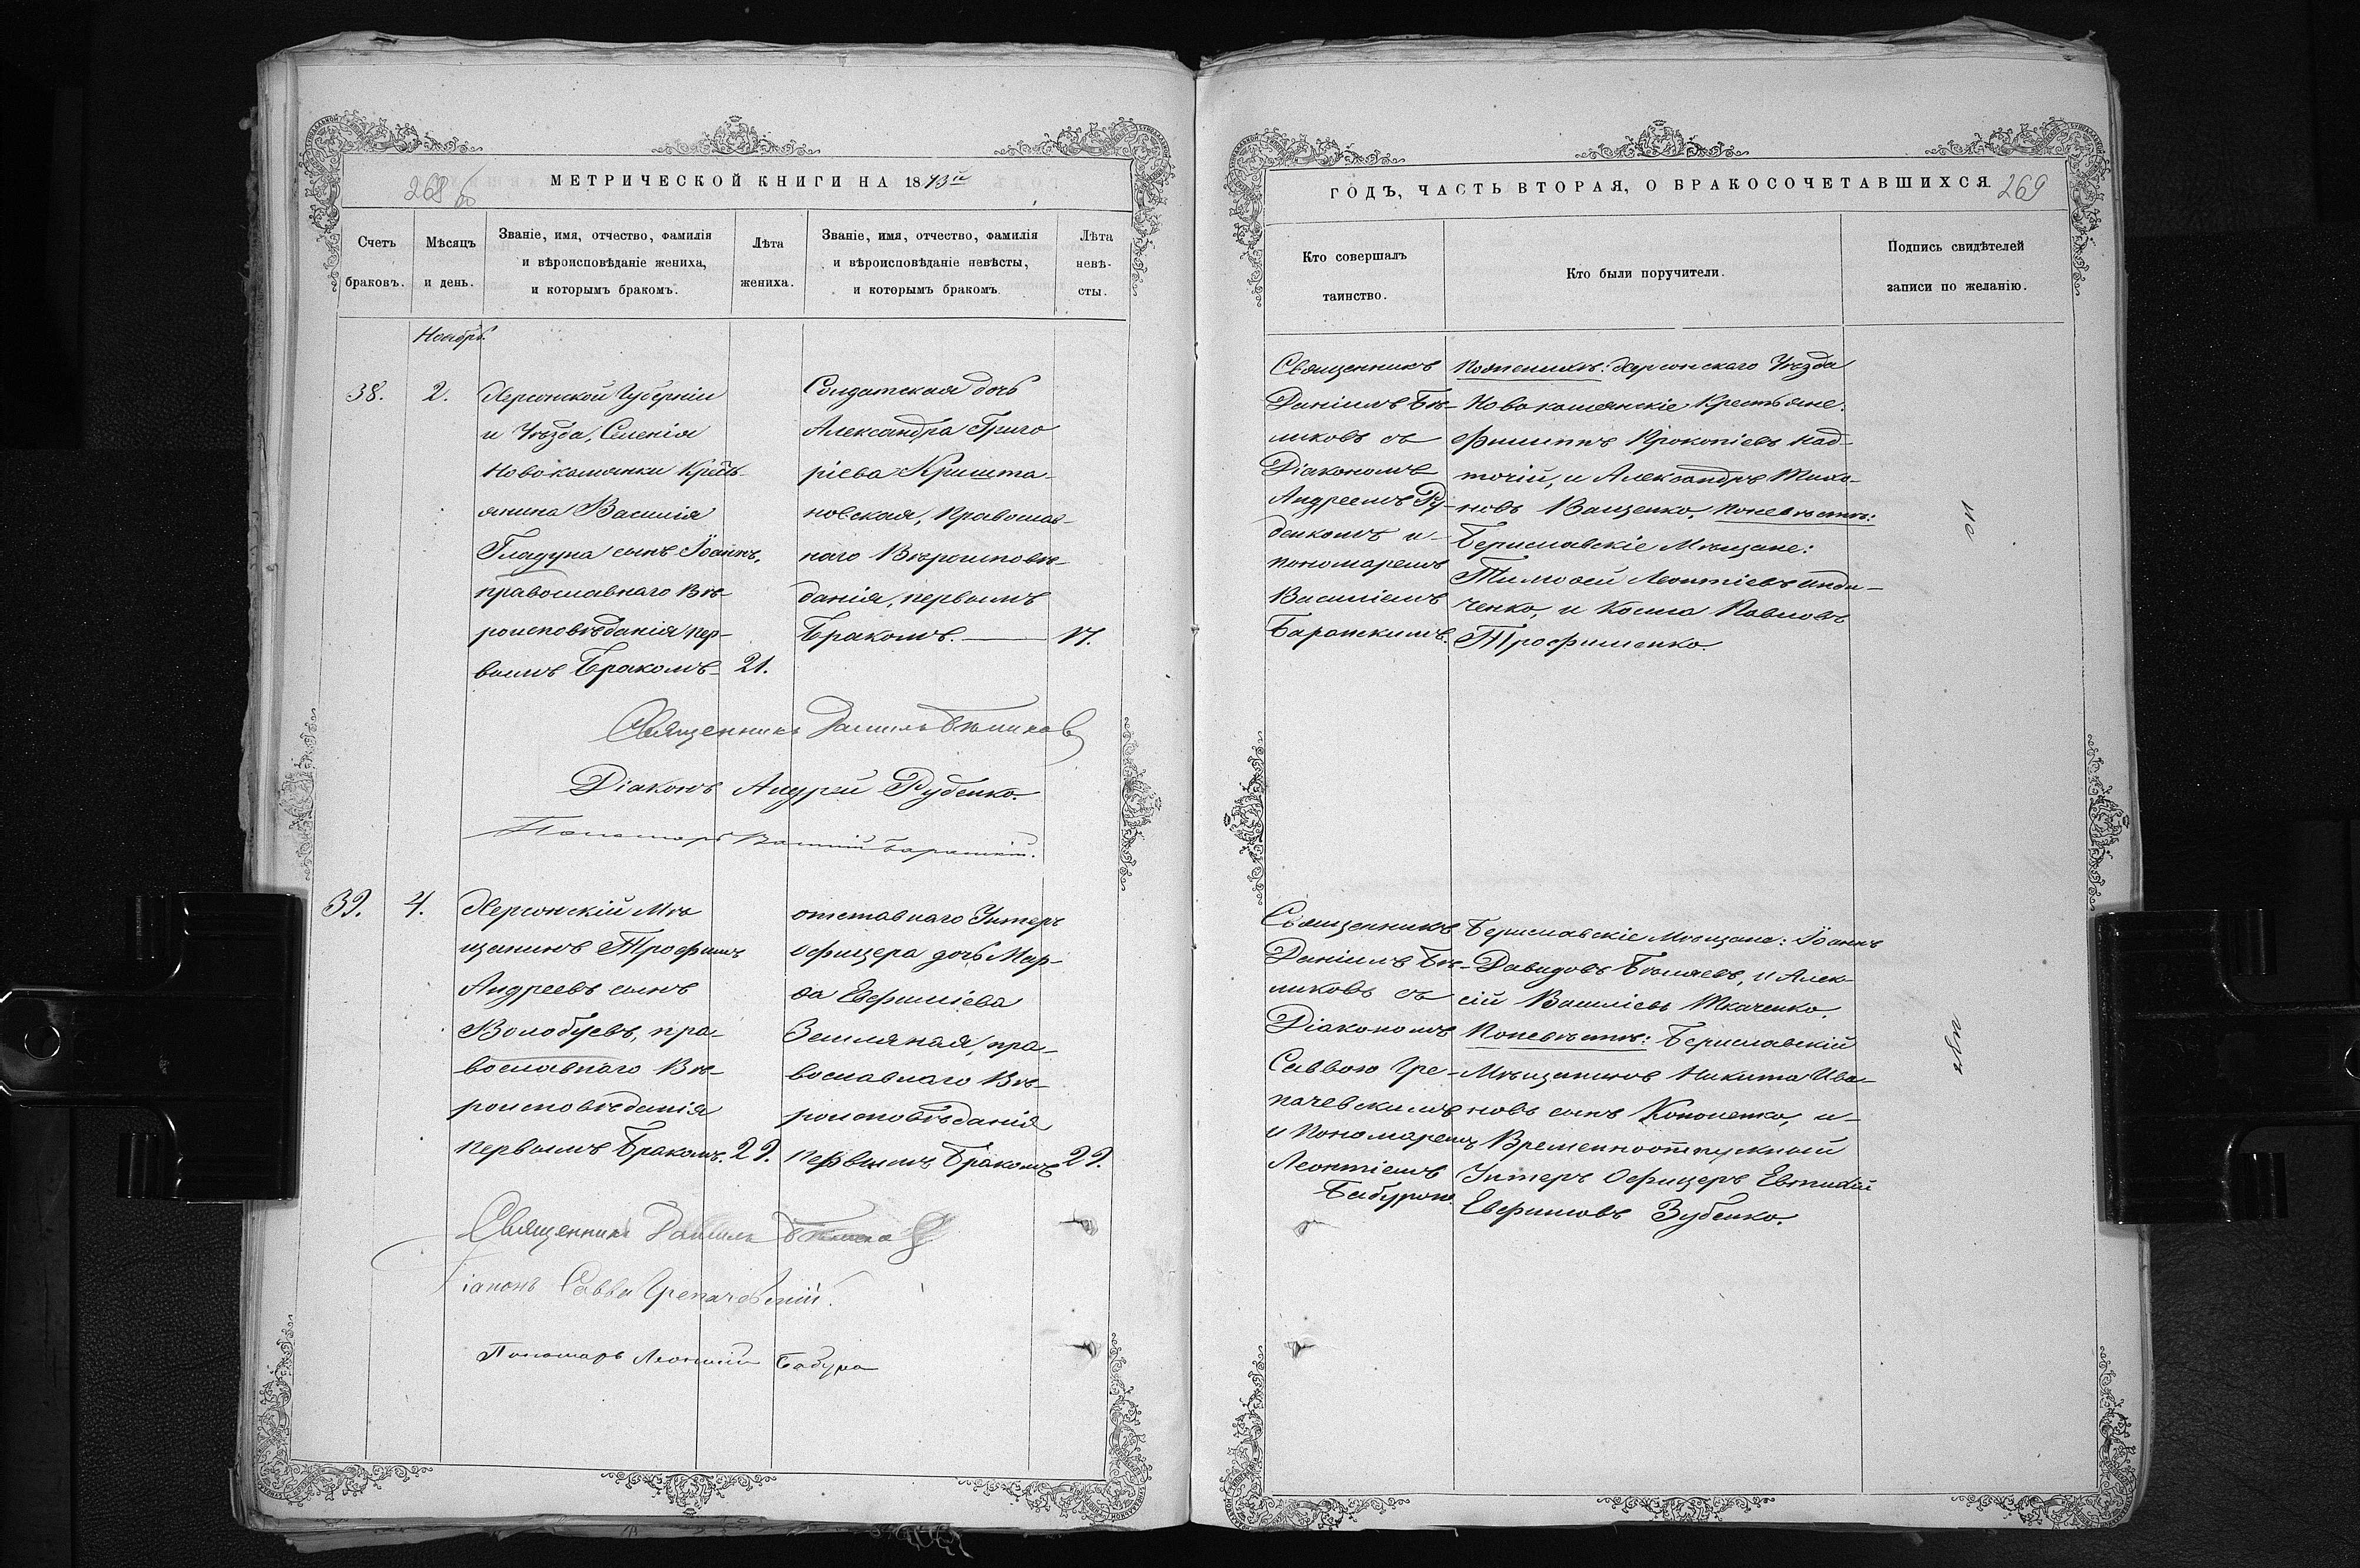 268 об
МЕТРИЧЕСКОЙ КНИГИ НА 1873й
Счетъ
браковъ.
Мѣсяцъ
и день.
Званіе, имя, отчество, фамилія
и вѣроисповѣданіе жениха,
и которымъ бракомъ.
Лѣта
жениха.
Званіе, имя, отчество, фамилія
и вѣроисповѣданіе невѣсты,
и которымъ бракомъ
Лѣта
невѣ-
сты.
Ноябрь.
38.
2.
Херсонской Губерніи
и Уѣзда, Селенія
Новокаменки Крест-
янина Василія
Гладуна сынъ Іоаннъ,
православнаго Вѣ-
роисповѣданія пер-
вымъ Бракомъ
21.
Солдатская дочь
Александра Григо
ріева Кришта-
новская, Православ-
наго Вѣроисповѣ-
данія, первымъ
Бракомъ.
17.
Священникъ Даніилъ Бѣликов
Діаконъ Андрей Руденко.
Пономарь Василій
39.
4.
Херсонскій Мѣ
щанинъ Трофимъ
Андреевъ сынъ
Волобуевъ, пра-
вославнаго Вѣ-
роисповѣданія
первымъ Бракомъ.
29.
отставнаго Унтеръ
Офицера дочь Мар-
ѳа Евфиміева
Земляная, пра-
вославнаго Вѣ-
роисповѣданія
первымъ Бракомъ
29.
Священникъ Даніилъ
Діаконъ Савва Грепачевскій.
Пономарь Леонтій Бабура
ГОДЪ, ЧАСТЬ ВТОРАЯ, О БРАКОСОЧЕТАВШИХСЯ
269
Кто совершалъ
таинство.
Кто были поручители.
Подпись свидѣтелей
записи по желанію.
Священникъ
Даніилъ Бѣ-
ликовъ съ
Діакономъ
Андреемъ Ру-
денкомъ и
пономаремъ
Василіемъ
По женихѣ: Херсонскаго Уѣзда
Новокаменскіе Крестьяне:
Филиппъ Прокопіевъ Над-
точій, и Александръ Тихо-
новъ Ващенко, По невѣстѣ:
Бериславскіе Мѣщане:
Тимоѳей Леонтіевъ
ченко, и Косма Павловъ
Трофименко.
Священникъ
Даніилъ Бѣ-
ликовъ съ
Діакономъ
Саввою Гре-
пачевскимъ
и Пономаремъ
Леонтіемъ
Бабурою.
Бериславскіе Мѣщане: Іоаннъ
Давидовъ Бѣляевъ, и Алек-
сій Василіевъ Ткаченко.
По невѣстѣ: Бериславскій
Мѣщанинъ Никита Ива-
новъ сынъ Кононенко, и
Временноотпускный
Унтеръ Офицеръ Евтихій
Евфимовъ Зубенко.